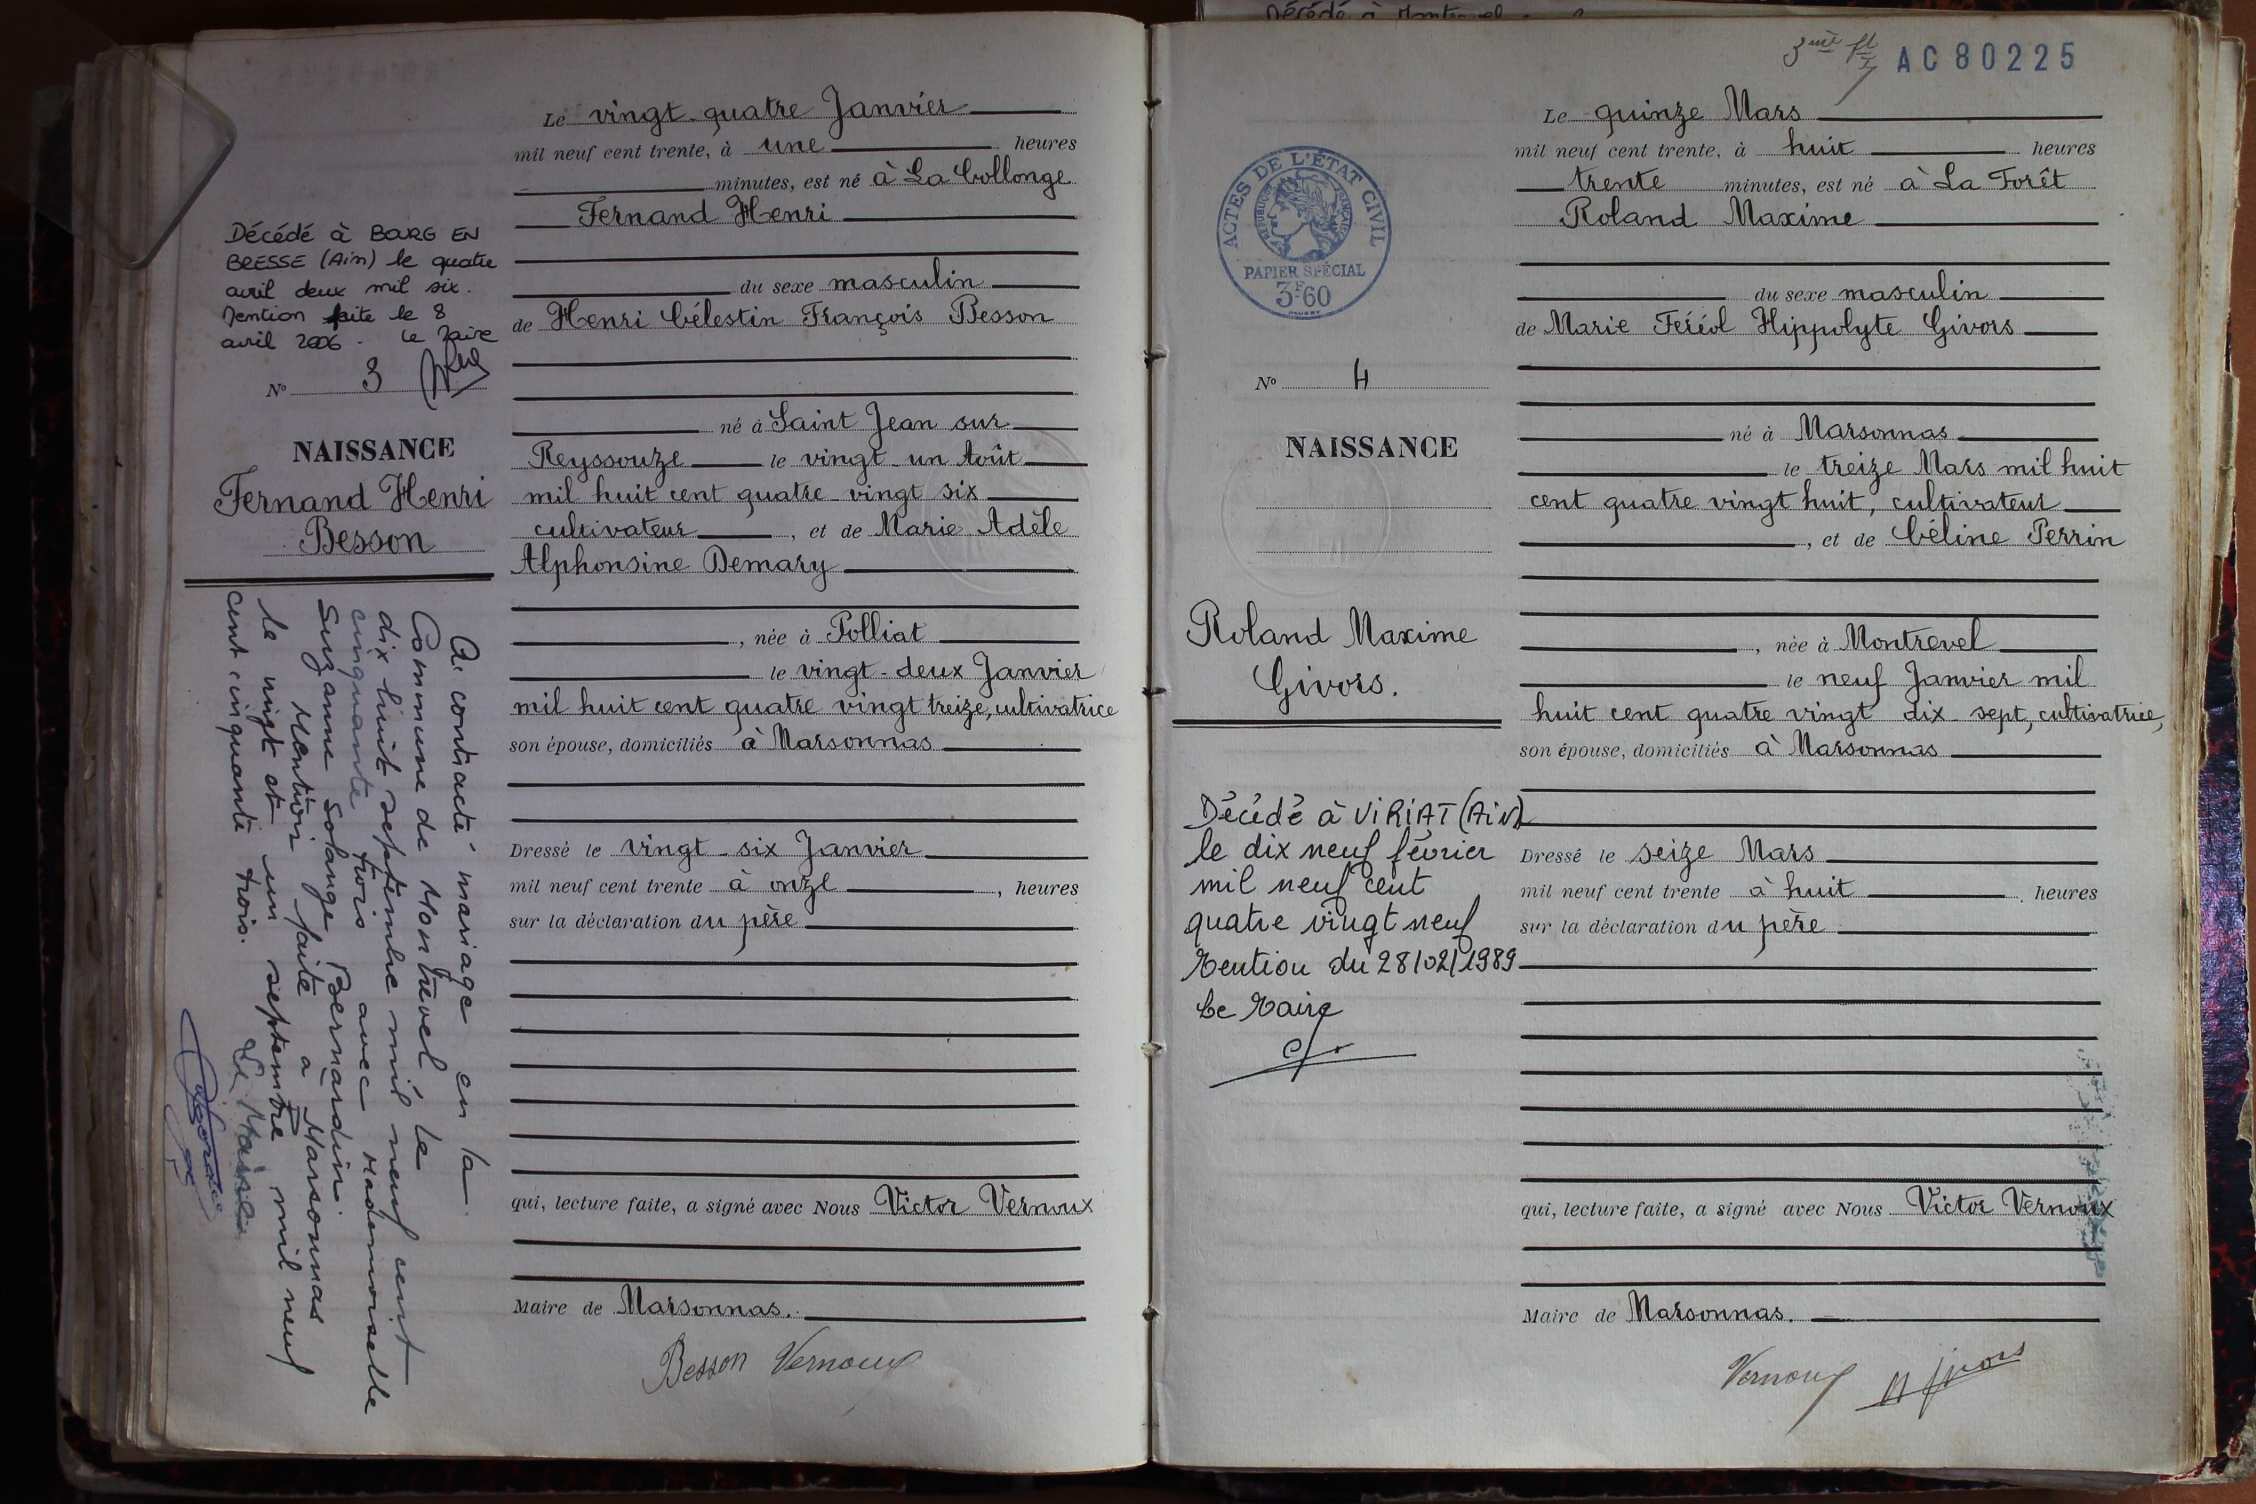 Décédé à BOURG EN
BRESSE (Ain) le quatre
avril deux mil six.
Mention faite le 8
avril 2006. Le Maire
N° 3
NAISSANCE
Fernand Henri
Besson
A contracté mariage en la
Commune de Montrevel le
dix huit septembre mil neuf cent
cinquante trois avec Mademoiselle
Suzanne Solange Bernardin
Mention faite a Marsonnas
le vingt et un septembre mil neuf
cent cinquante trois.
Le Maire
Le vingt-quatre Janvier
mil neuf cent trente, à une heures
minutes, est né à La Collonge
Fernand Henri
du sexe masculin
de Henri Célestin François Besson
né à Saint Jean sur
Reyssouze le vingt-un Août
mil huit cent quatre-vingt six
cultivateur, et de Marie Adèle
Alphonsine Demary
, née à Polliat
le vingt-deux Janvier
mil huit cent quatre vingt treize, cultivatrice
son épouse, domiciliés à Marsonnas
Dressé le vingt-six Janvier
mil neuf cent trente à onze, heures
sur la déclaration du père
qui, lecture faite, a signé avec Nous Victor Vernoux
Maire de Marsonnas.
Besson Vernoux
3me
AC80225
ACTES DE L'ÉTAT CIVIL
RÉPUBLIQUE FRANÇAISE
PAPIER SPÉCIAL
3F60
N° 4
NAISSANCE
Roland Maxime
Givors.
Décédé à VIRIAT (Ain)
le dix neuf février
mil neuf cent
quatre vingt neuf
Mention du 28/02/1989
Le Maire
Le quinze Mars
mil neuf cent trente, à huit heures
trente minutes, est né à La Forêt
Roland Maxime
du sexe masculin
de Marie Féréol Hippolyte Givors
né à Marsonnas
le treize Mars mil huit
cent quatre vingt huit, cultivateur
, et de Céline Perrin
, née à Montrevel
le neuf Janvier mil
huit cent quatre vingt dix-sept, cultivatrice,
son épouse, domiciliés à Marsonnas
Dressé le seize Mars
mil neuf cent trente à huit, heures
sur la déclaration du père
qui, lecture faite, a signé avec Nous Victor Vernoux
Maire de Marsonnas.
Vernoux H Givors